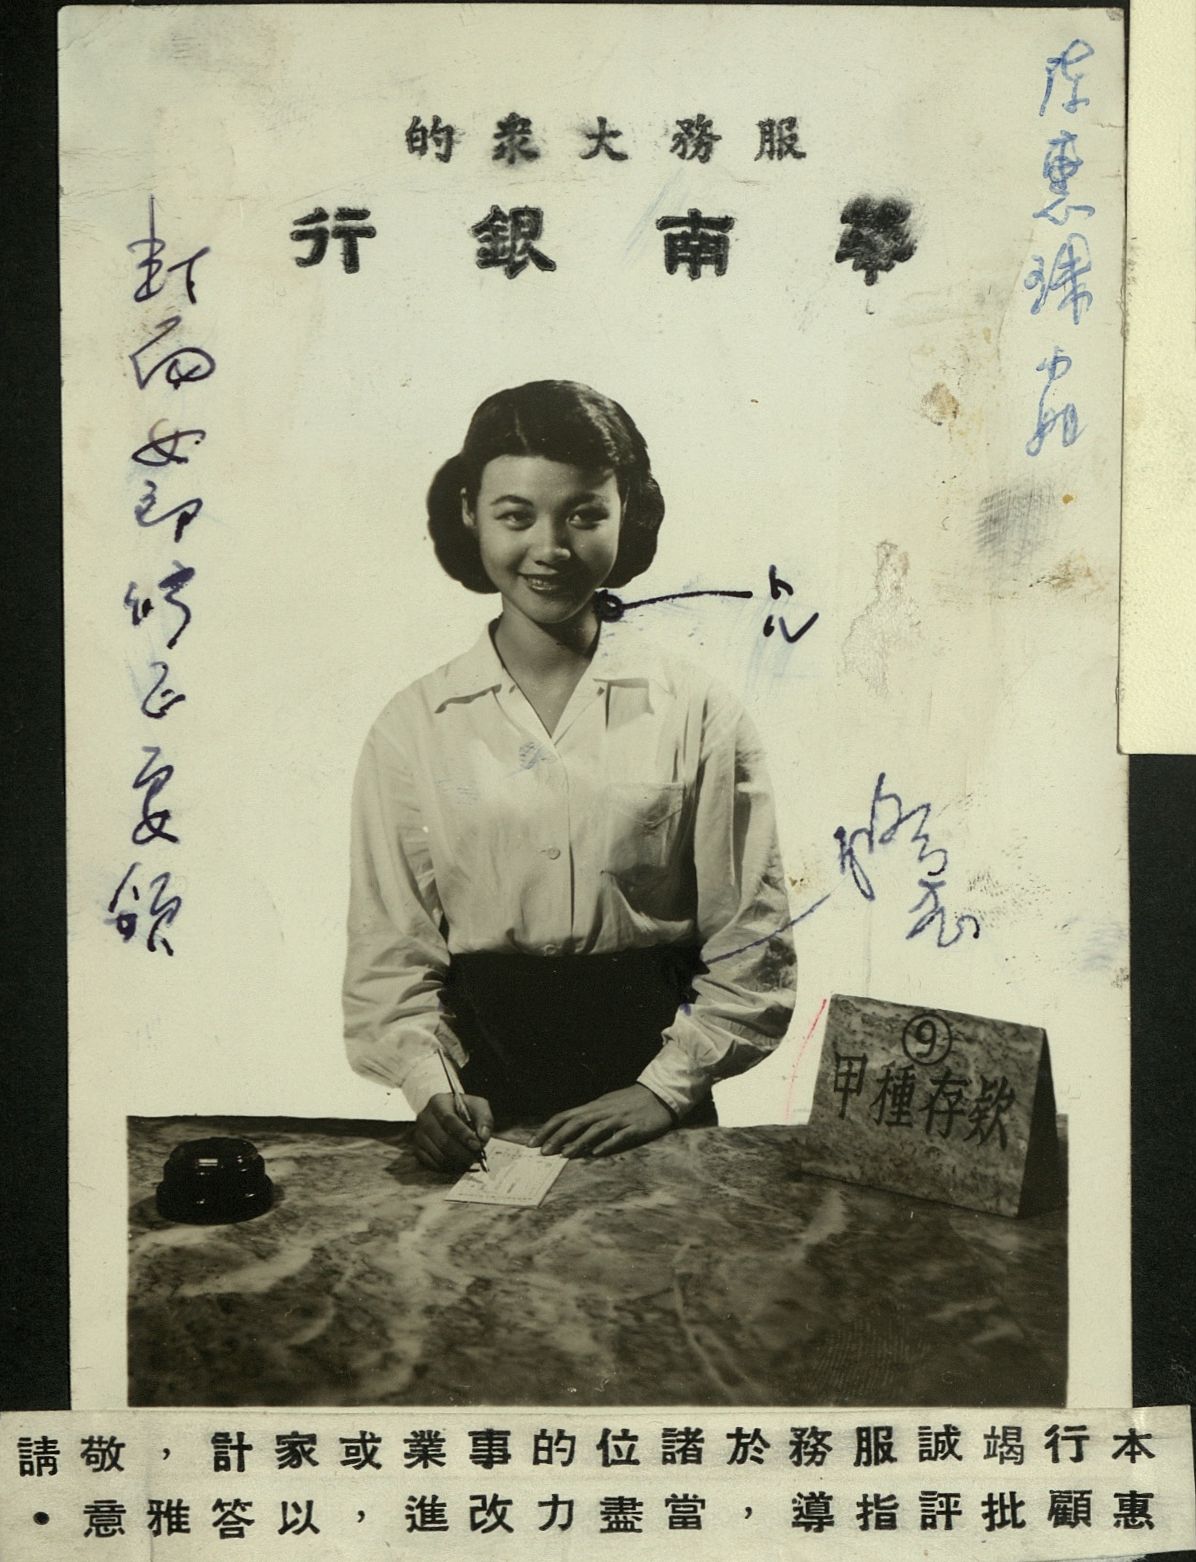 服務大衆的
華南銀行
⑨
甲種存欵
封面女郎
本行竭誠服務於諸位的事業或家計，敬請
惠顧批評指導，當盡力改進，以答雅意．